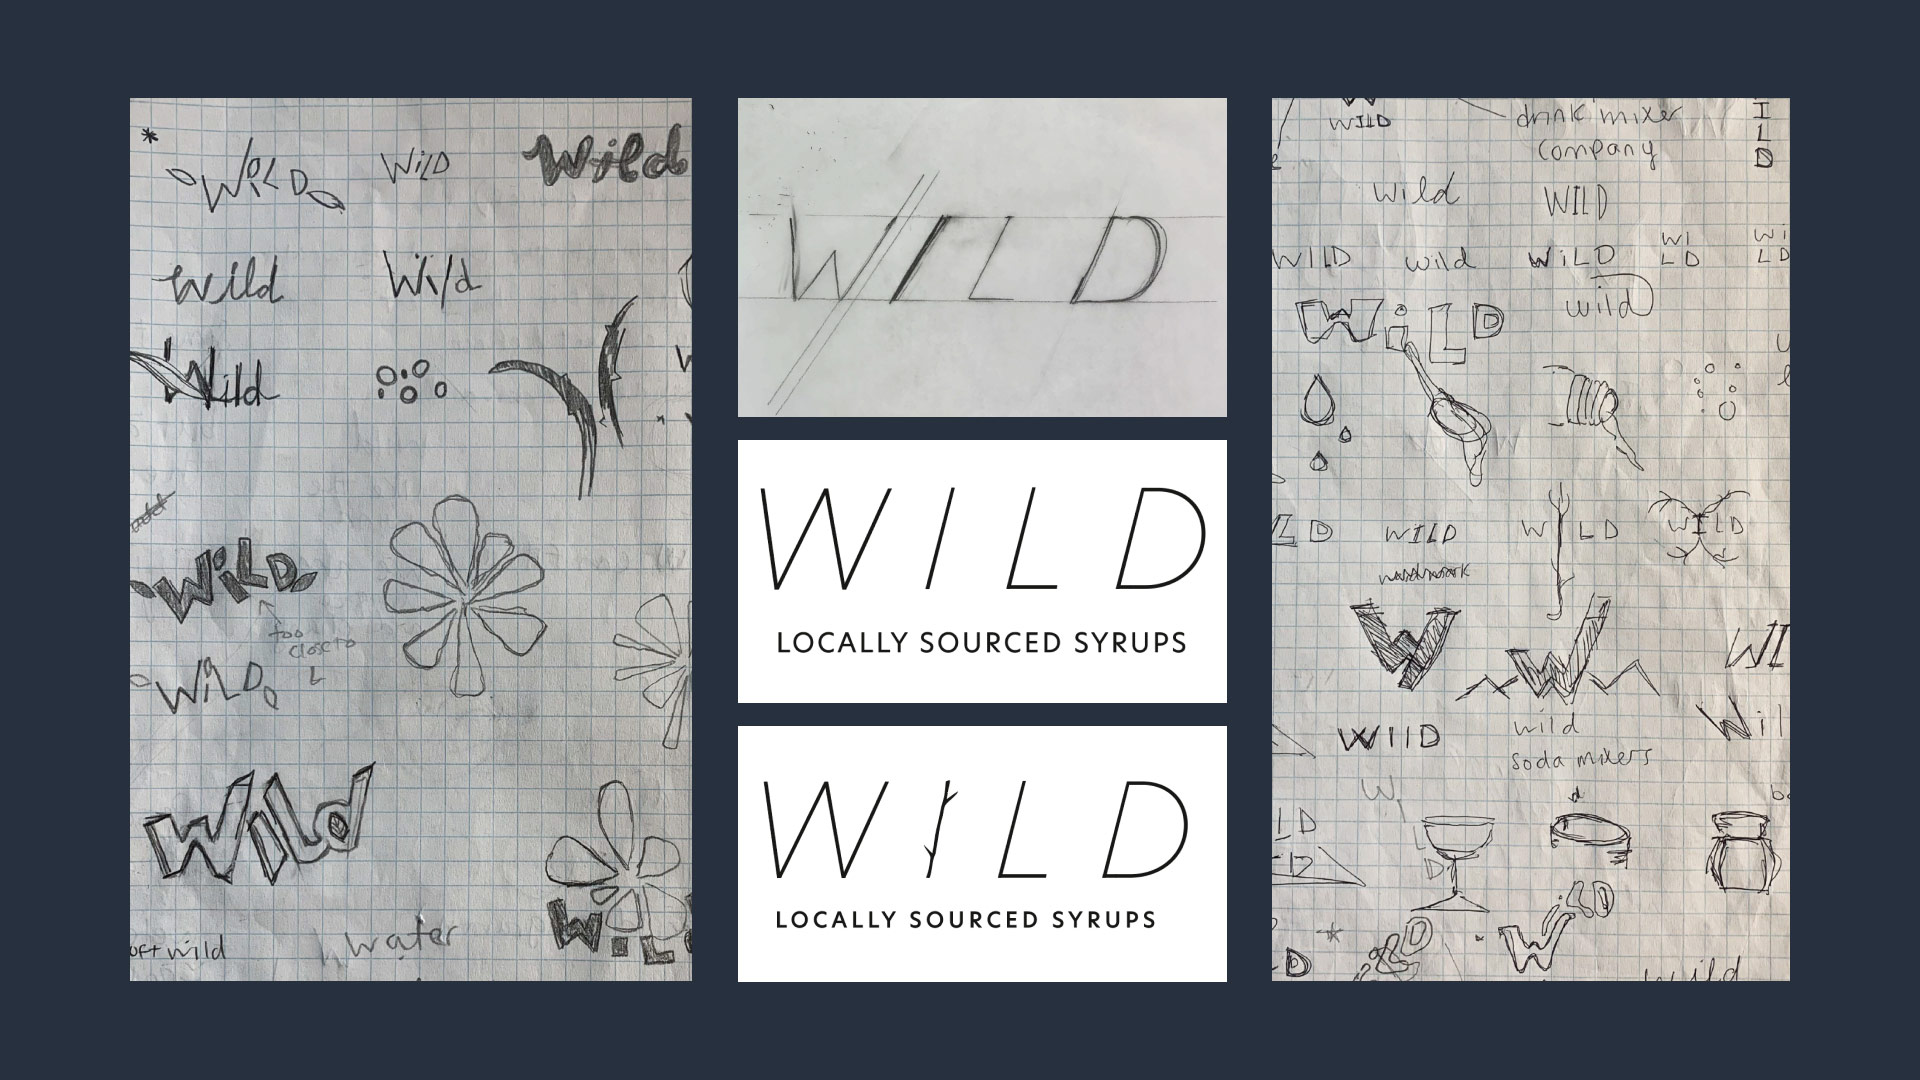 WiLD
WiLD
Wild
wild
Wild
Wild
WiLD
too
close to
L
WiLD
Wild
WiL
water
oft wild
WILD
WILD
LOCALLY SOURCED SYRUPS
WILD
LOCALLY SOURCED SYRUPS
W
WILD
drink mixer
company
I
L
D
wild
WILD
WILD
wild
WiLD
WI
LD
Wi
LD
wild
WiLD
LD
WILD
W LD
WILD
wordmark
W
W
WI
WIlD
wild
soda mixers
Wil
W
LD
L
D
WiLD
iLD
D
wild